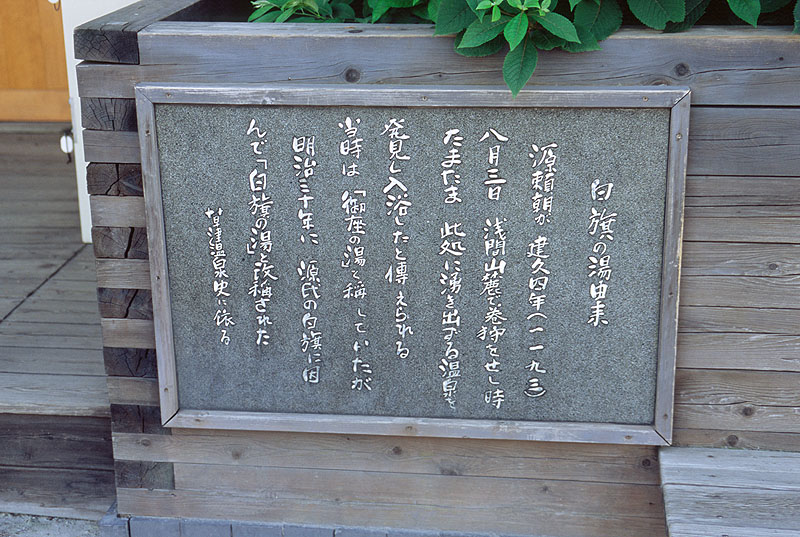 白旗の湯由来
源頼朝が 建久四年(一一九三)
八月三日 浅間山麓で巻狩をせし時
たまたま 此処に湧き出ずる温泉を
発見し入浴したと傳えられる
当時は「御座の湯」と称していたが
明治三十年に 源氏の白旗に因
んで「白旗の湯」と改称された
草津温泉史に依る